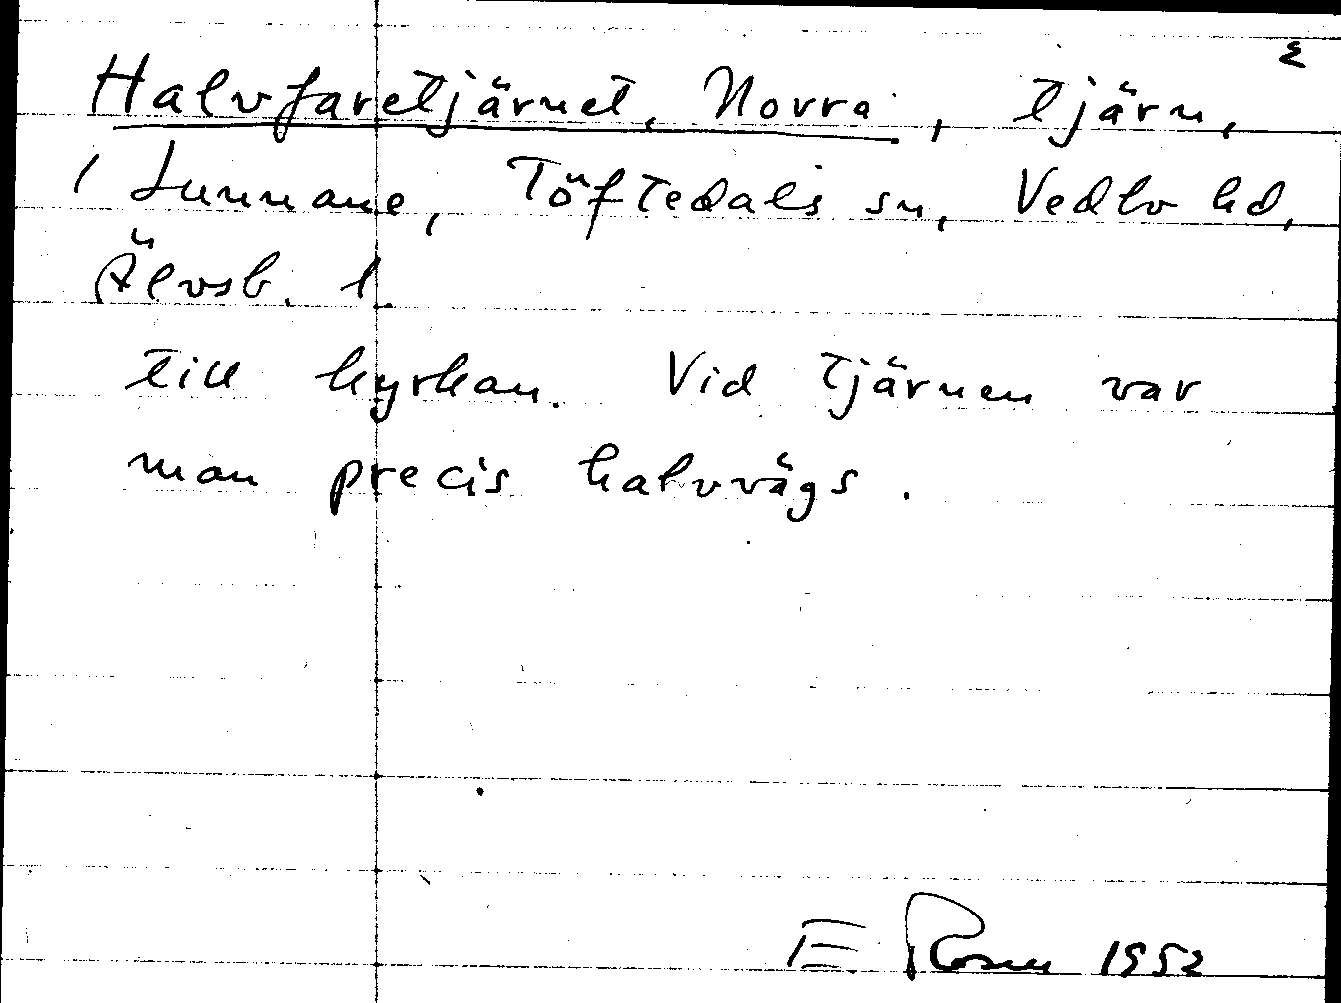 Halvfaretjärnet, Norra, tjärn,
1 Lunnane, Töftedals sn, Vedbo hd,
Älvsb. l.
till kyrkan. Vid tjärnen var
man precis halvvägs.
E Rosen 1952